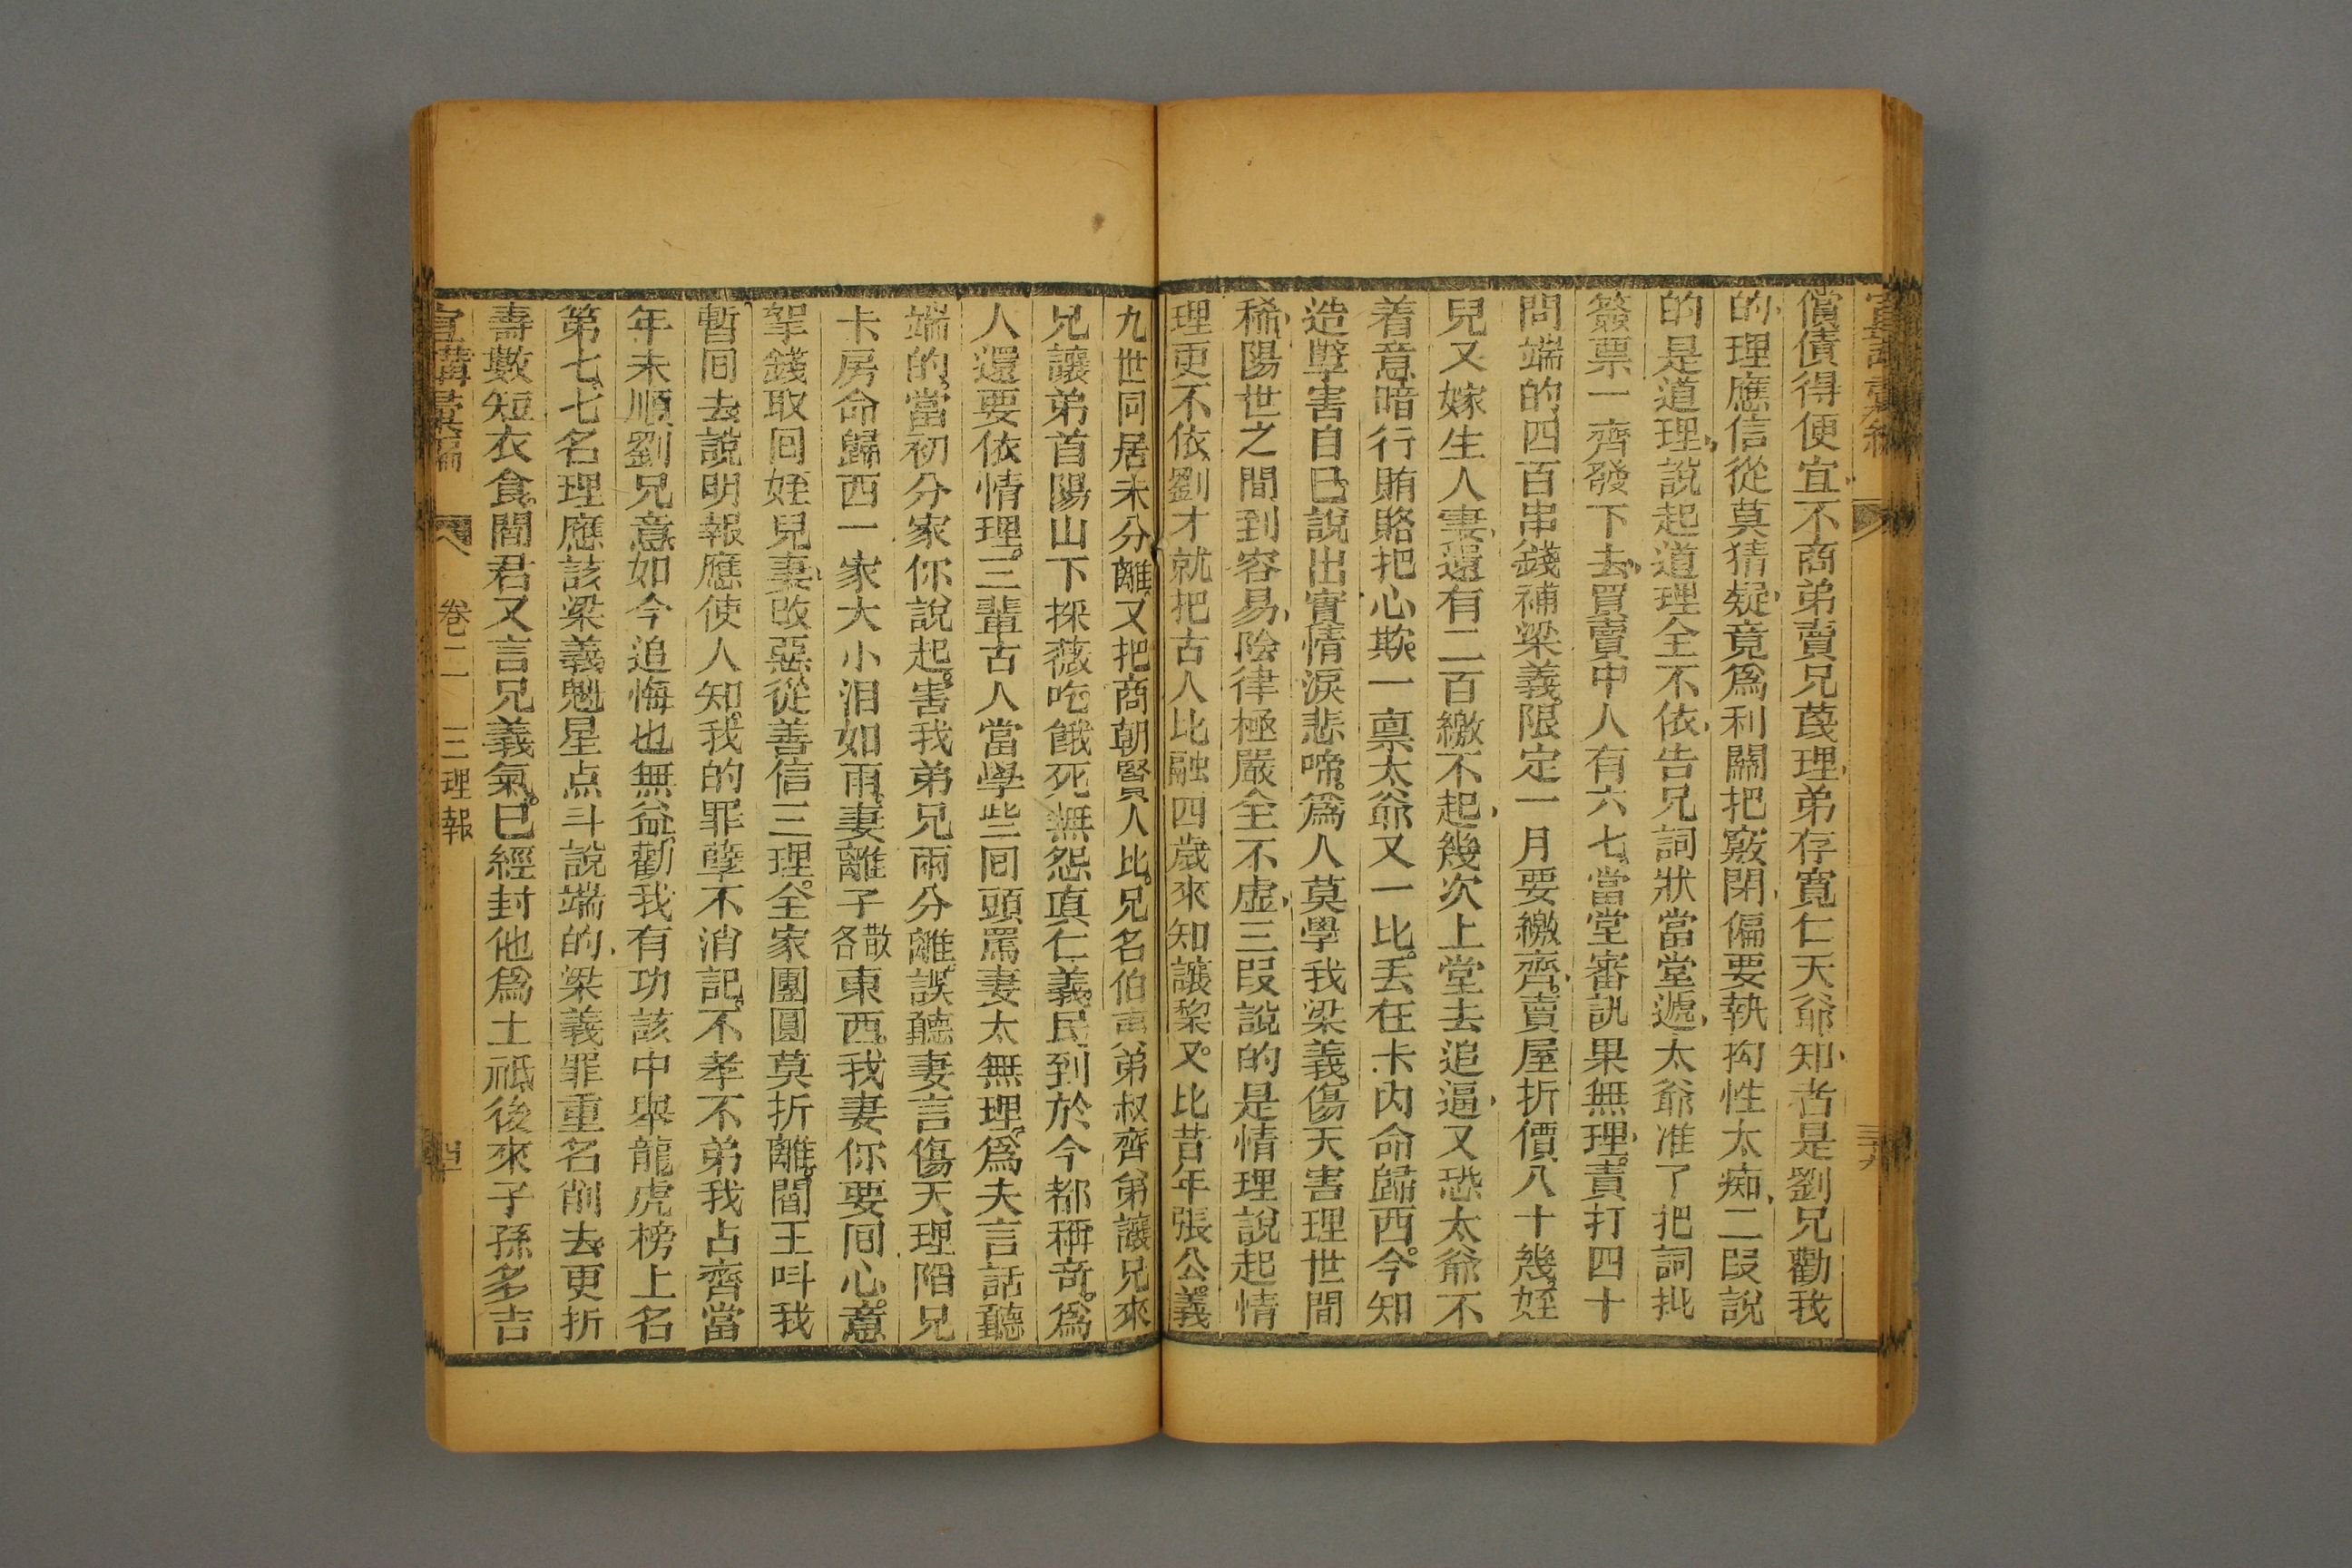 償債得便宜不商弟賣兄蔑理弟存寬仁天爺知者是劉兄勸我
的理應信從莫猜疑竟爲利關把竅閉偏要執拘性太痴二段說
的是道理說起道理全不依告兄詞狀當堂遞太爺准了把詞批
簽票一齊發下去買賣中人有六七當堂審訊果無理責打四十
問端的四百串錢補梁義限定一月要繳齊賣屋折價八十幾姪
兒又嫁生人妻還有二百繳不起幾次上堂去追逼又恐太爺不
着意暗行賄賂把心欺一稟太爺又一比丢在卡內命歸西今知
造孽害自己說出實情淚悲啼爲人莫學我梁義傷天害理世間
稀陽世之間到容易陰律極嚴全不虛三段說的是情理說起情
理更不依劉才就把古人比融四歲來知讓棃又比昔年張公義
九世同居未分離又把商朝賢人比兄名伯夷弟叔齊弟讓兄來
兄讓弟首陽山下採薇吃餓死無怨真仁義民到於今都稱奇爲
人還要依情理三輩古人當學些囘頭罵妻太無理爲夫言話聽
端的當初分家你說起害我弟兄兩分離誤聽妻言傷天理陷兄
卡房命歸西一家大小泪如雨妻離子散各東西我妻你要囘心意
挐錢取囘姪兒妻改惡從善信三理全家團圓莫折離閻王呌我
暫囘去說明報應使人知我的罪孽不消記不孝不弟我占齊當
年未順劉兄意如今追悔也無益勸我有功該中舉龍虎榜上名
第七七名理應該梁義魁星点斗說端的梁義罪重名削去更折
壽數短衣食閻君又言兄義氣已經封他爲土祗後來子孫多吉
宣講彙編 卷二 三理報